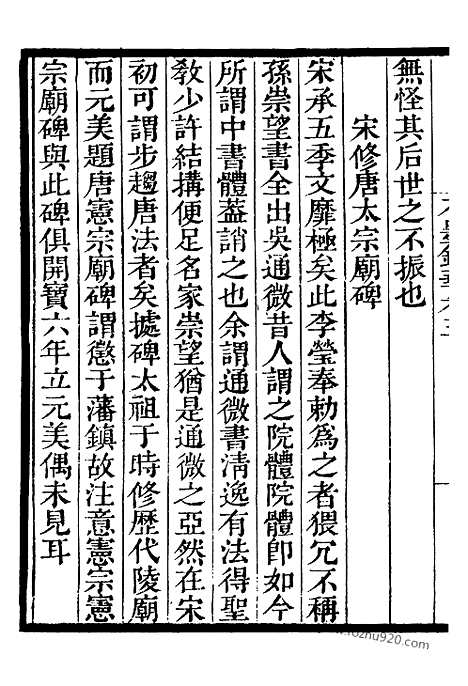 無怪其后世之不振也
宋修唐太宗廟碑
宋承五季文靡極矣此李瑩奉勅爲之者猥冗不稱
孫崇望書全出吳通微昔人謂之院體院體卽如今
所謂中書體蓋誚之也余謂通微書清逸有法得聖
敎少許結搆便足名家崇望猶是通微之亞然在宋
初可謂步趨唐法者矣據碑太祖于時修歷代陵廟
而元美題唐憲宗廟碑謂懲于藩鎮故注意憲宗憲
宗廟碑與此碑俱開寶六年立元美偶未見耳